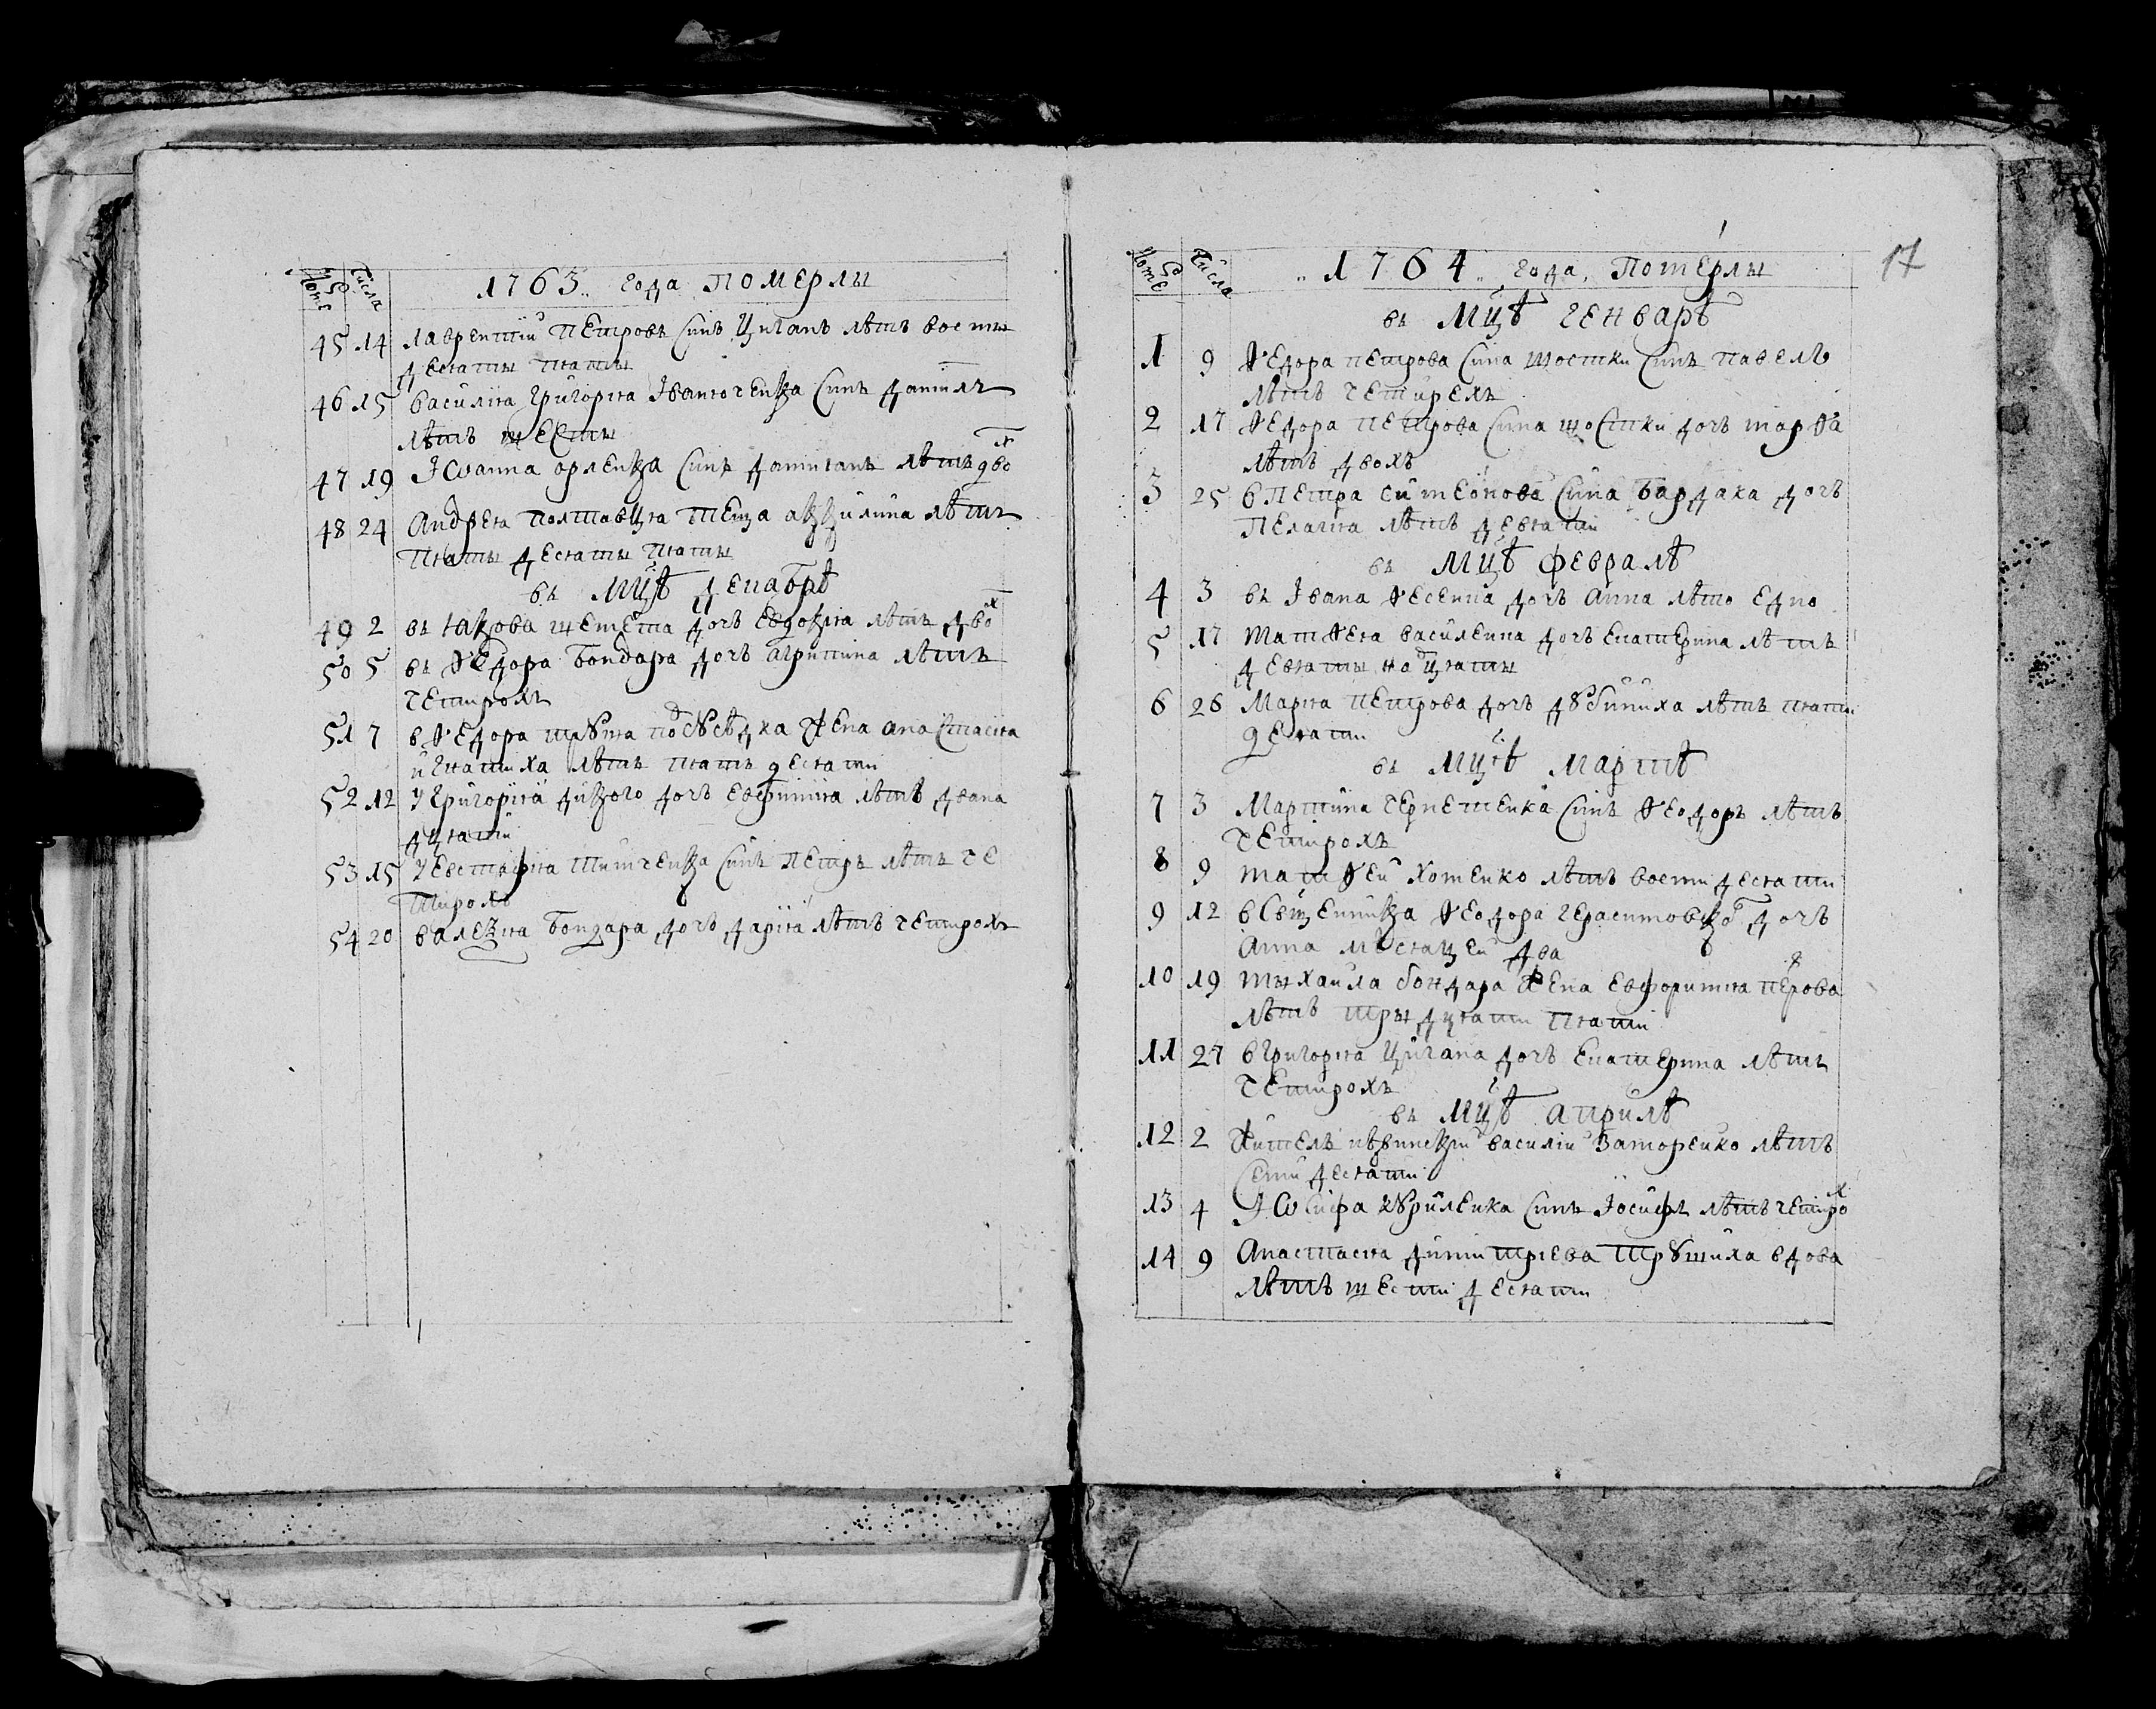 Номеръ Числа 1763 года Померлы
45 14 Лаврентій Петровъ синъ Циганъ лѣтъ восмы
десятъ пять
46 15 Василія Григорія Іванюченка синъ Данилъ
лѣтъ шесты
47 19 Іѡанна Орленка синъ Даміанъ лѣтъ двох
48 24 Андрея Полтавця теща Акилина лѣтъ
пять десять пять
въ мцѣ Декабрѣ
49 2 въ Якова Шемета дочъ Евдокія лѣтъ двох
50 5 въ Ѳедора Бондара дочъ Агрипина лѣтъ
четирохъ
51 7 в Ѳедора подсусѣдка жена Анастасія
Игнатиха лѣтъ пять десяти
52 12 У Григорія Дикого дочъ Евфимія лѣтъ двана
дцяти
53 15 У Евстафія синъ Петръ лѣтъ че
тирохъ
54 20 в Бондара дочъ Дарія лѣтъ четирохъ
17
Номеръ Числа 1764 года Померлы
въ Мцѣ Генварѣ
1 9 Ѳедора Петрова сина Шостки синъ Павелъ
лѣтъ четирехъ
2 17 Ѳедора Петрова сина Шостки дочъ Марѳа
лѣтъ двохъ
3 25 в Петра Симеонова сина Бардака дочъ
Пелагія лѣтъ девяти
въ Мцѣ Февралѣ
4 3 въ Івана Ѳесенка дочъ Анна лѣто едно
5 17 Матѳея Василенка дочъ Екатерина лѣтъ
девятнадцяти
6 26 Марія Петрова дочъ лѣтъ пяти
десяти
въ Мцѣ Мартѣ
7 3 Мартина Чернешенка синъ Ѳеодоръ лѣтъ
четирохъ
8 9 Матѳей Хоменко лѣтъ восми десяти
9 12 в Свщенника Ѳеодора Герасимовского дочъ
Анна мѣсяцей два
10 19 Мыхаила Бондара жена Евфросимія Петрова
лѣтъ трыдцяти пяти
11 27 в Григорія Цигана дочъ Екатерина лѣтъ
четирохъ
въ Мцѣ Априлѣ
12 2 Житель Василій лѣтъ
семидесяти
13 4 Іѡсифа Куриленка синъ Іосифъ лѣтъ четирох
14 9 Анастасія Димитріева вдова
лѣтъ шести десяти